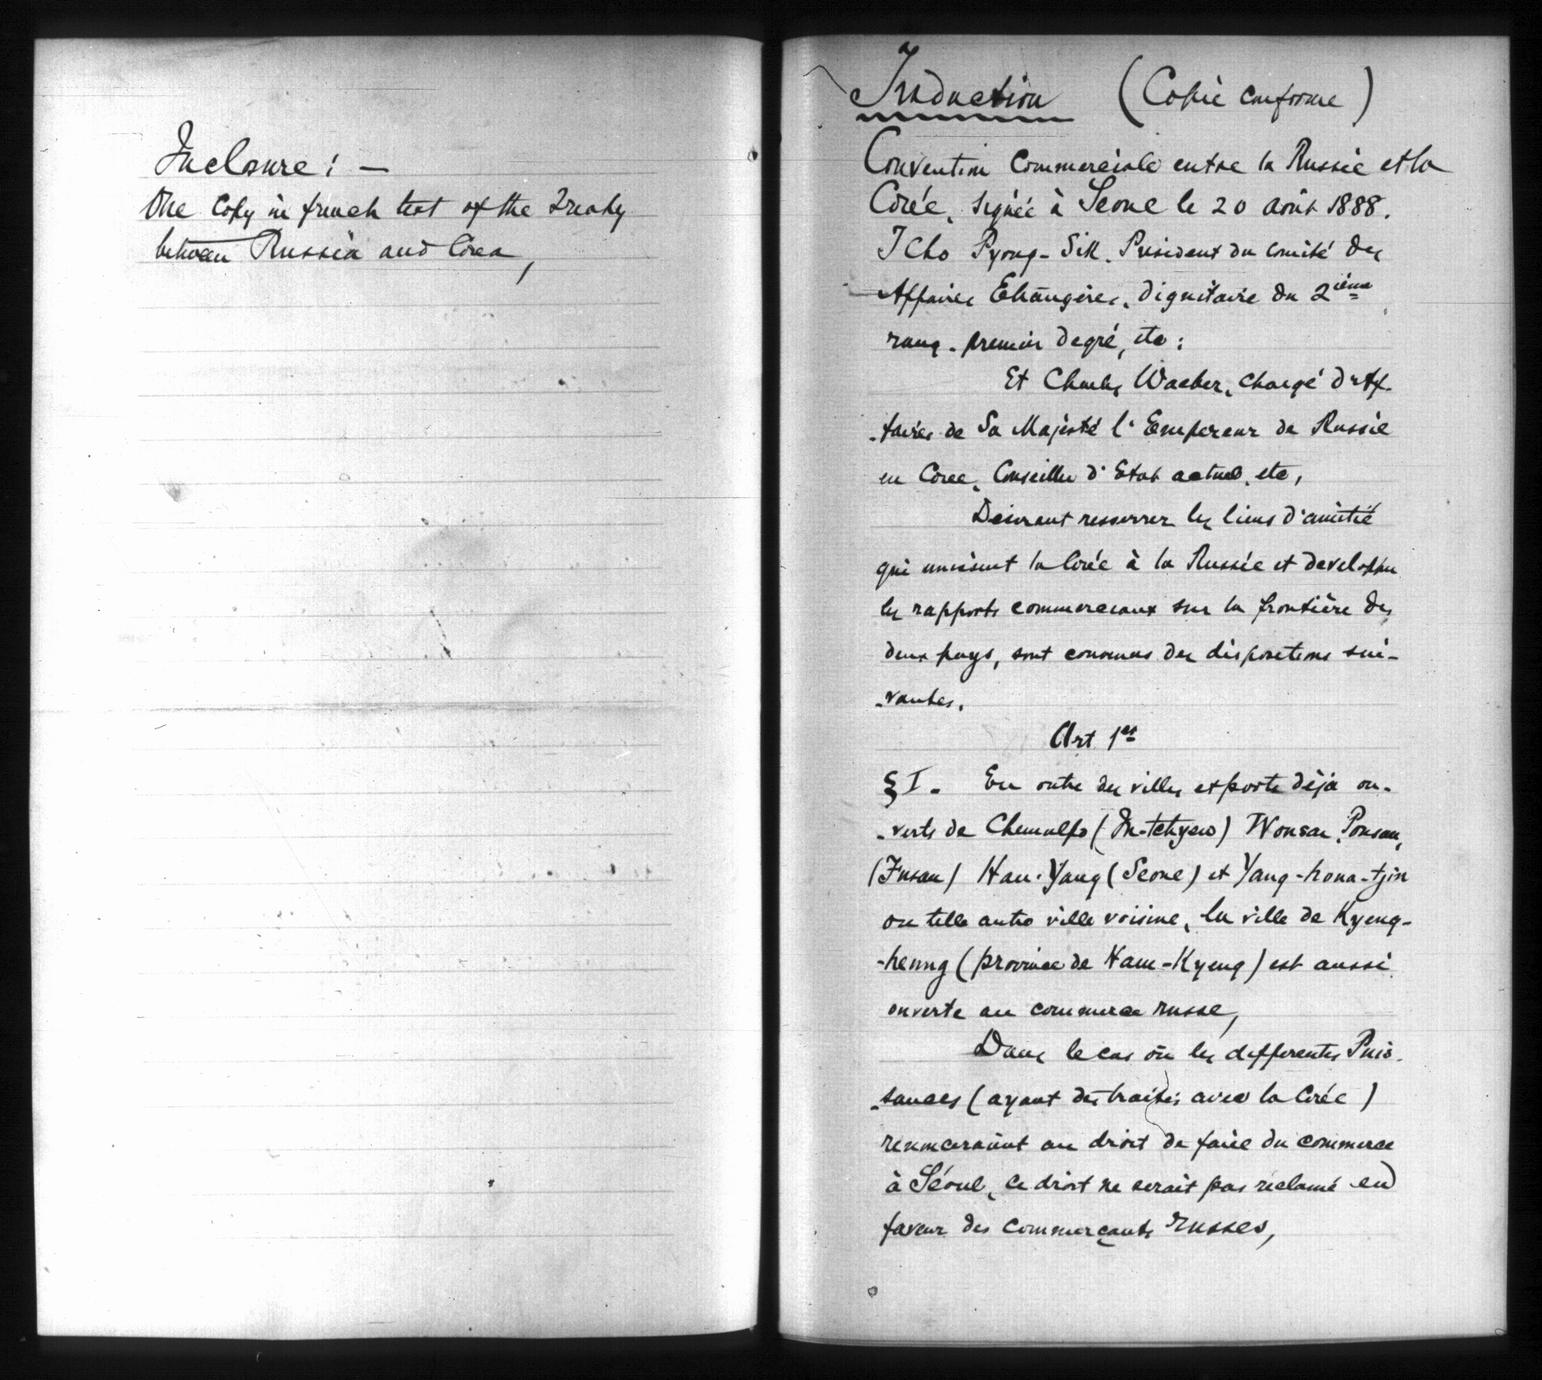 Inclosure: —
One Copy in french text of the Treaty
between Russia and Corea,
Traduction (Copie conforme)
Convention Commerciale entre la Russie et la
Corée, signée à Seoul le 20 août 1888.
Tcho Pyong-Sik, President du Comité des
Affaires Etrangères, dignitaire du 2ième
rang, premier degré, etc:
Et Charles Waeber, chargé d'Af-
-faires de Sa Majesté l'Empereur de Russie
en Coree, Conseiller d'Etat actuel, etc,
Desirant resserrer les liens d'amitié
qui unissent la Corée à la Russie et developper
les rapports commerciaux sur la frontière des
deux pays, sont convenus des dispositions sui-
-vantes.
Art 1er
§ I. En outre des villes et ports déja ou-
-verts de Chemulpo (In-tchyen) Wonsan, Pousan,
(Fusan) Han-Yang (Seoul) et Yang-houa-tjin
ou telle autre ville voisine, la ville de Kyeng-
-heung (province de Ham-Kyeng) est aussi
ouverte au commerce russe,
Dans le cas où les differentes Puis-
-sances (ayant des traités avec la Corée)
renonceraient au droit de faire du commerce
à Séoul, ce droit ne serait pas réclamé en
faveur des commerçants russes,